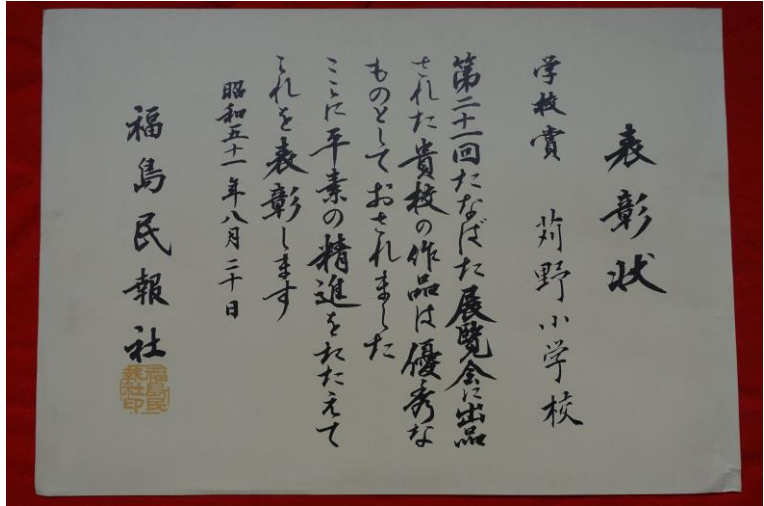 表彰状
学校賞 苅野小学校
第二十一回たなばた展覧会に出品
された貴校の作品は優秀な
ものとしておされました
ここに平素の精進をたたえて
これを表彰します
昭和五十一年八月二十日
福島民報社
福島民報社印